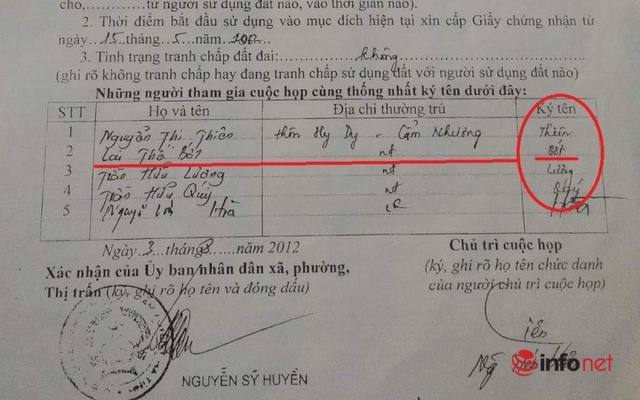 cho,...........từ người sử dụng đất nào, vào thời gian nào).
2. Thời điểm bắt đầu sử dụng vào mục đích hiện tại xin cấp Giấy chứng nhận từ
ngày...15...tháng...5...năm...
3. Tình trạng tranh chấp đất đai:...........không...........
(ghi rõ không tranh chấp hay đang tranh chấp sử dụng đất với người sử dụng đất nào)
Những người tham gia cuộc họp cùng thống nhất ký tên dưới đây:
STT Họ và tên Địa chỉ thường trú Ký tên
1 Nguyễn Thị Thiên thôn Hy Duy - Cẩm Nhượng Thiên
2 Lại Thế Bớt nt Bớt
3 Trần Hữu Lương nt Lương
4 Trần Hữu Quý nt Quý
5 Nguyễn Hà
Ngày..3...tháng..8......năm 2012
Xác nhận của Ủy ban nhân dân xã, phường,
Thị trấn (ký, ghi rõ họ tên và đóng dấu)
Chủ trì cuộc họp
(ký, ghi rõ họ tên chức danh
của người chủ trì cuộc họp)
NGUYỄN SỸ HUYỀN
infonet